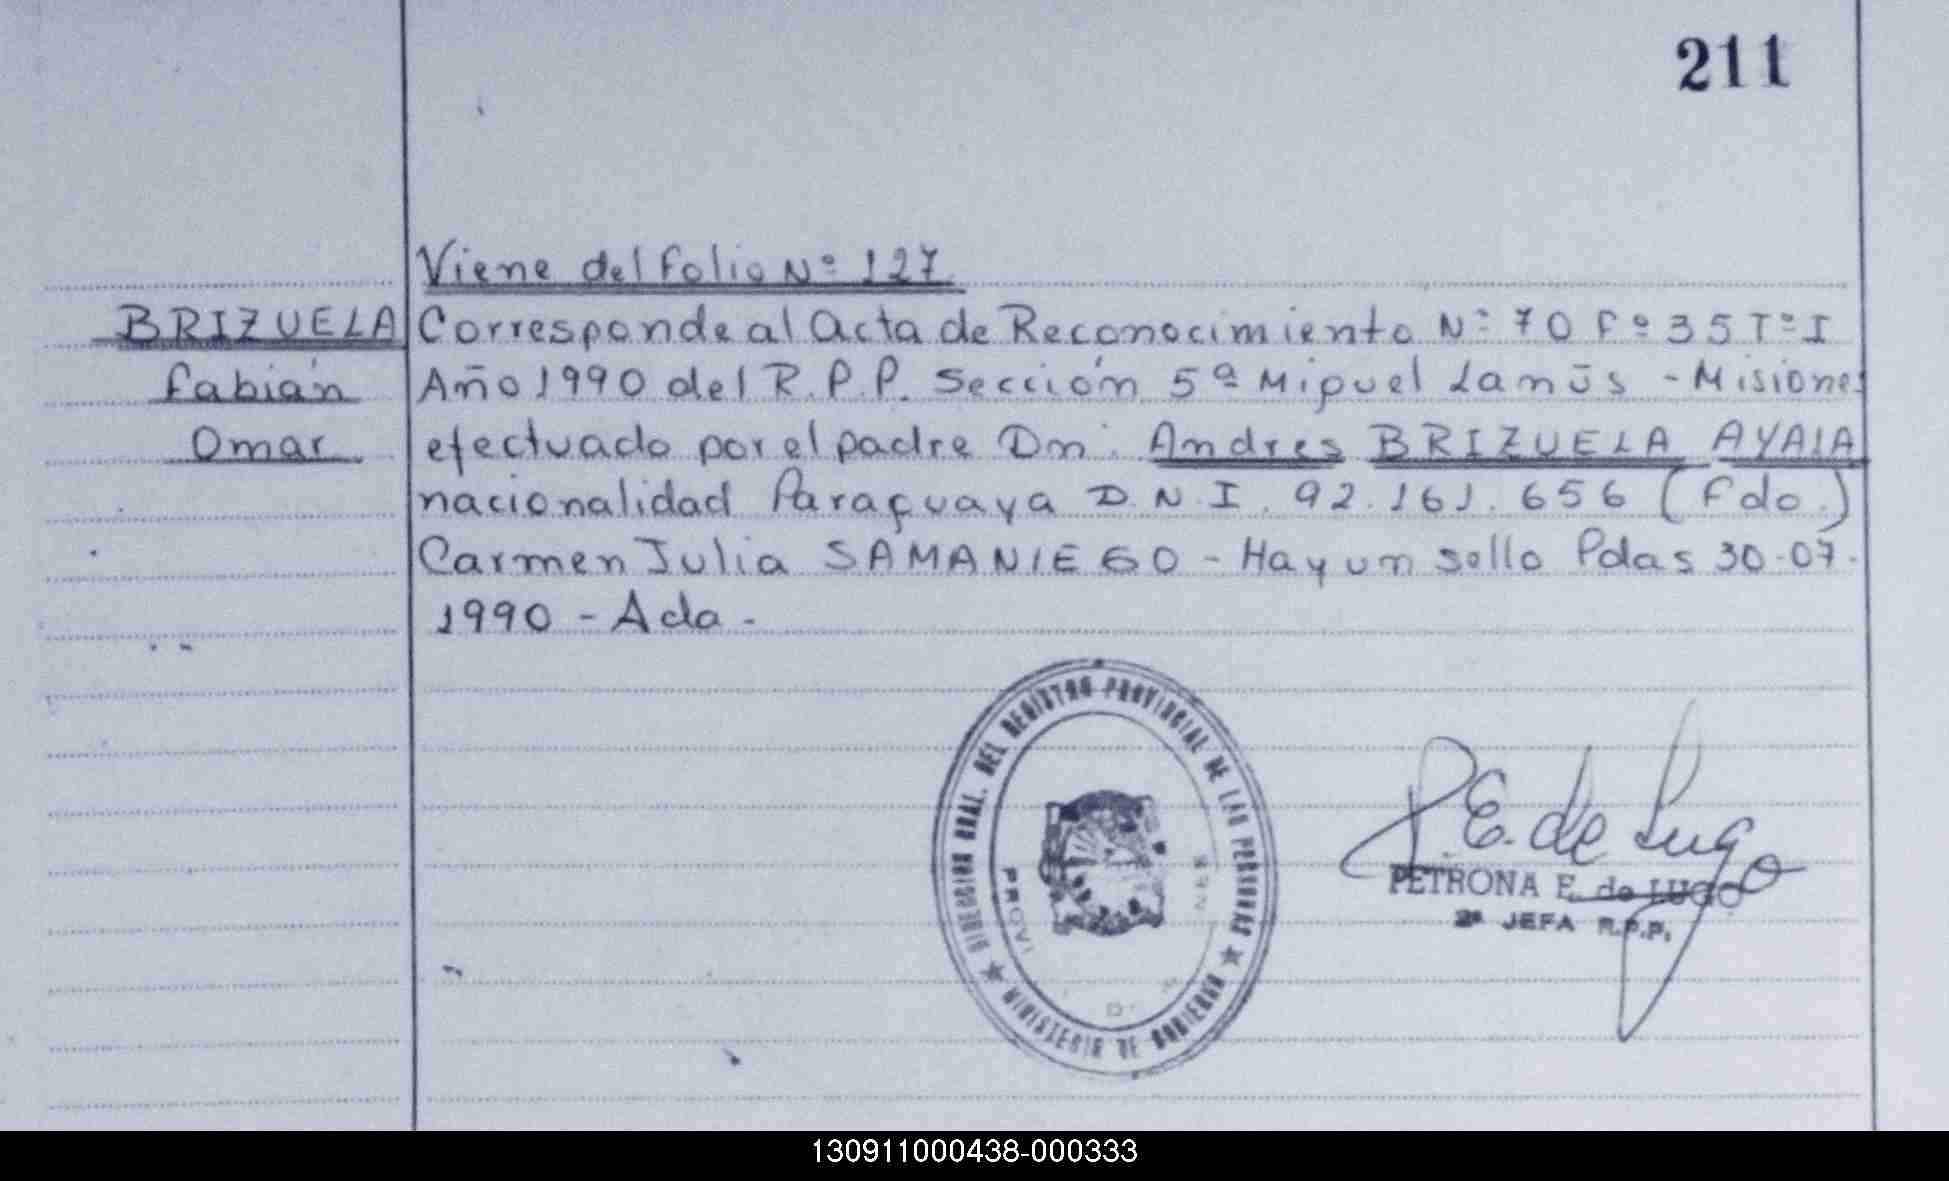 211
Viene del folio Nº 127
BRIZUELA Corresponde al Acta de Reconocimiento Nº 70 Fº 35 Tº I
Fabián Año 1990 del R.P.P. Sección 5ª Miguel Lanús - Misiones
Omar efectuado por el padre Dn. Andres BRIZUELA AYALA
nacionalidad Paraguaya D.N.I. 92.161.656 (Fdo.)
Carmen Julia SAMANIEGO - Hay un sello Pdas 30-07-
1990 - Ada -
DIRECCION GRAL. DEL REGISTRO PROVINCIAL DE LAS PERSONAS
MINISTERIO DE GOBIERNO
P. E. de Lugo
PETRONA E. de LUGO
2ª JEFA R.P.P.
130911000438-000333